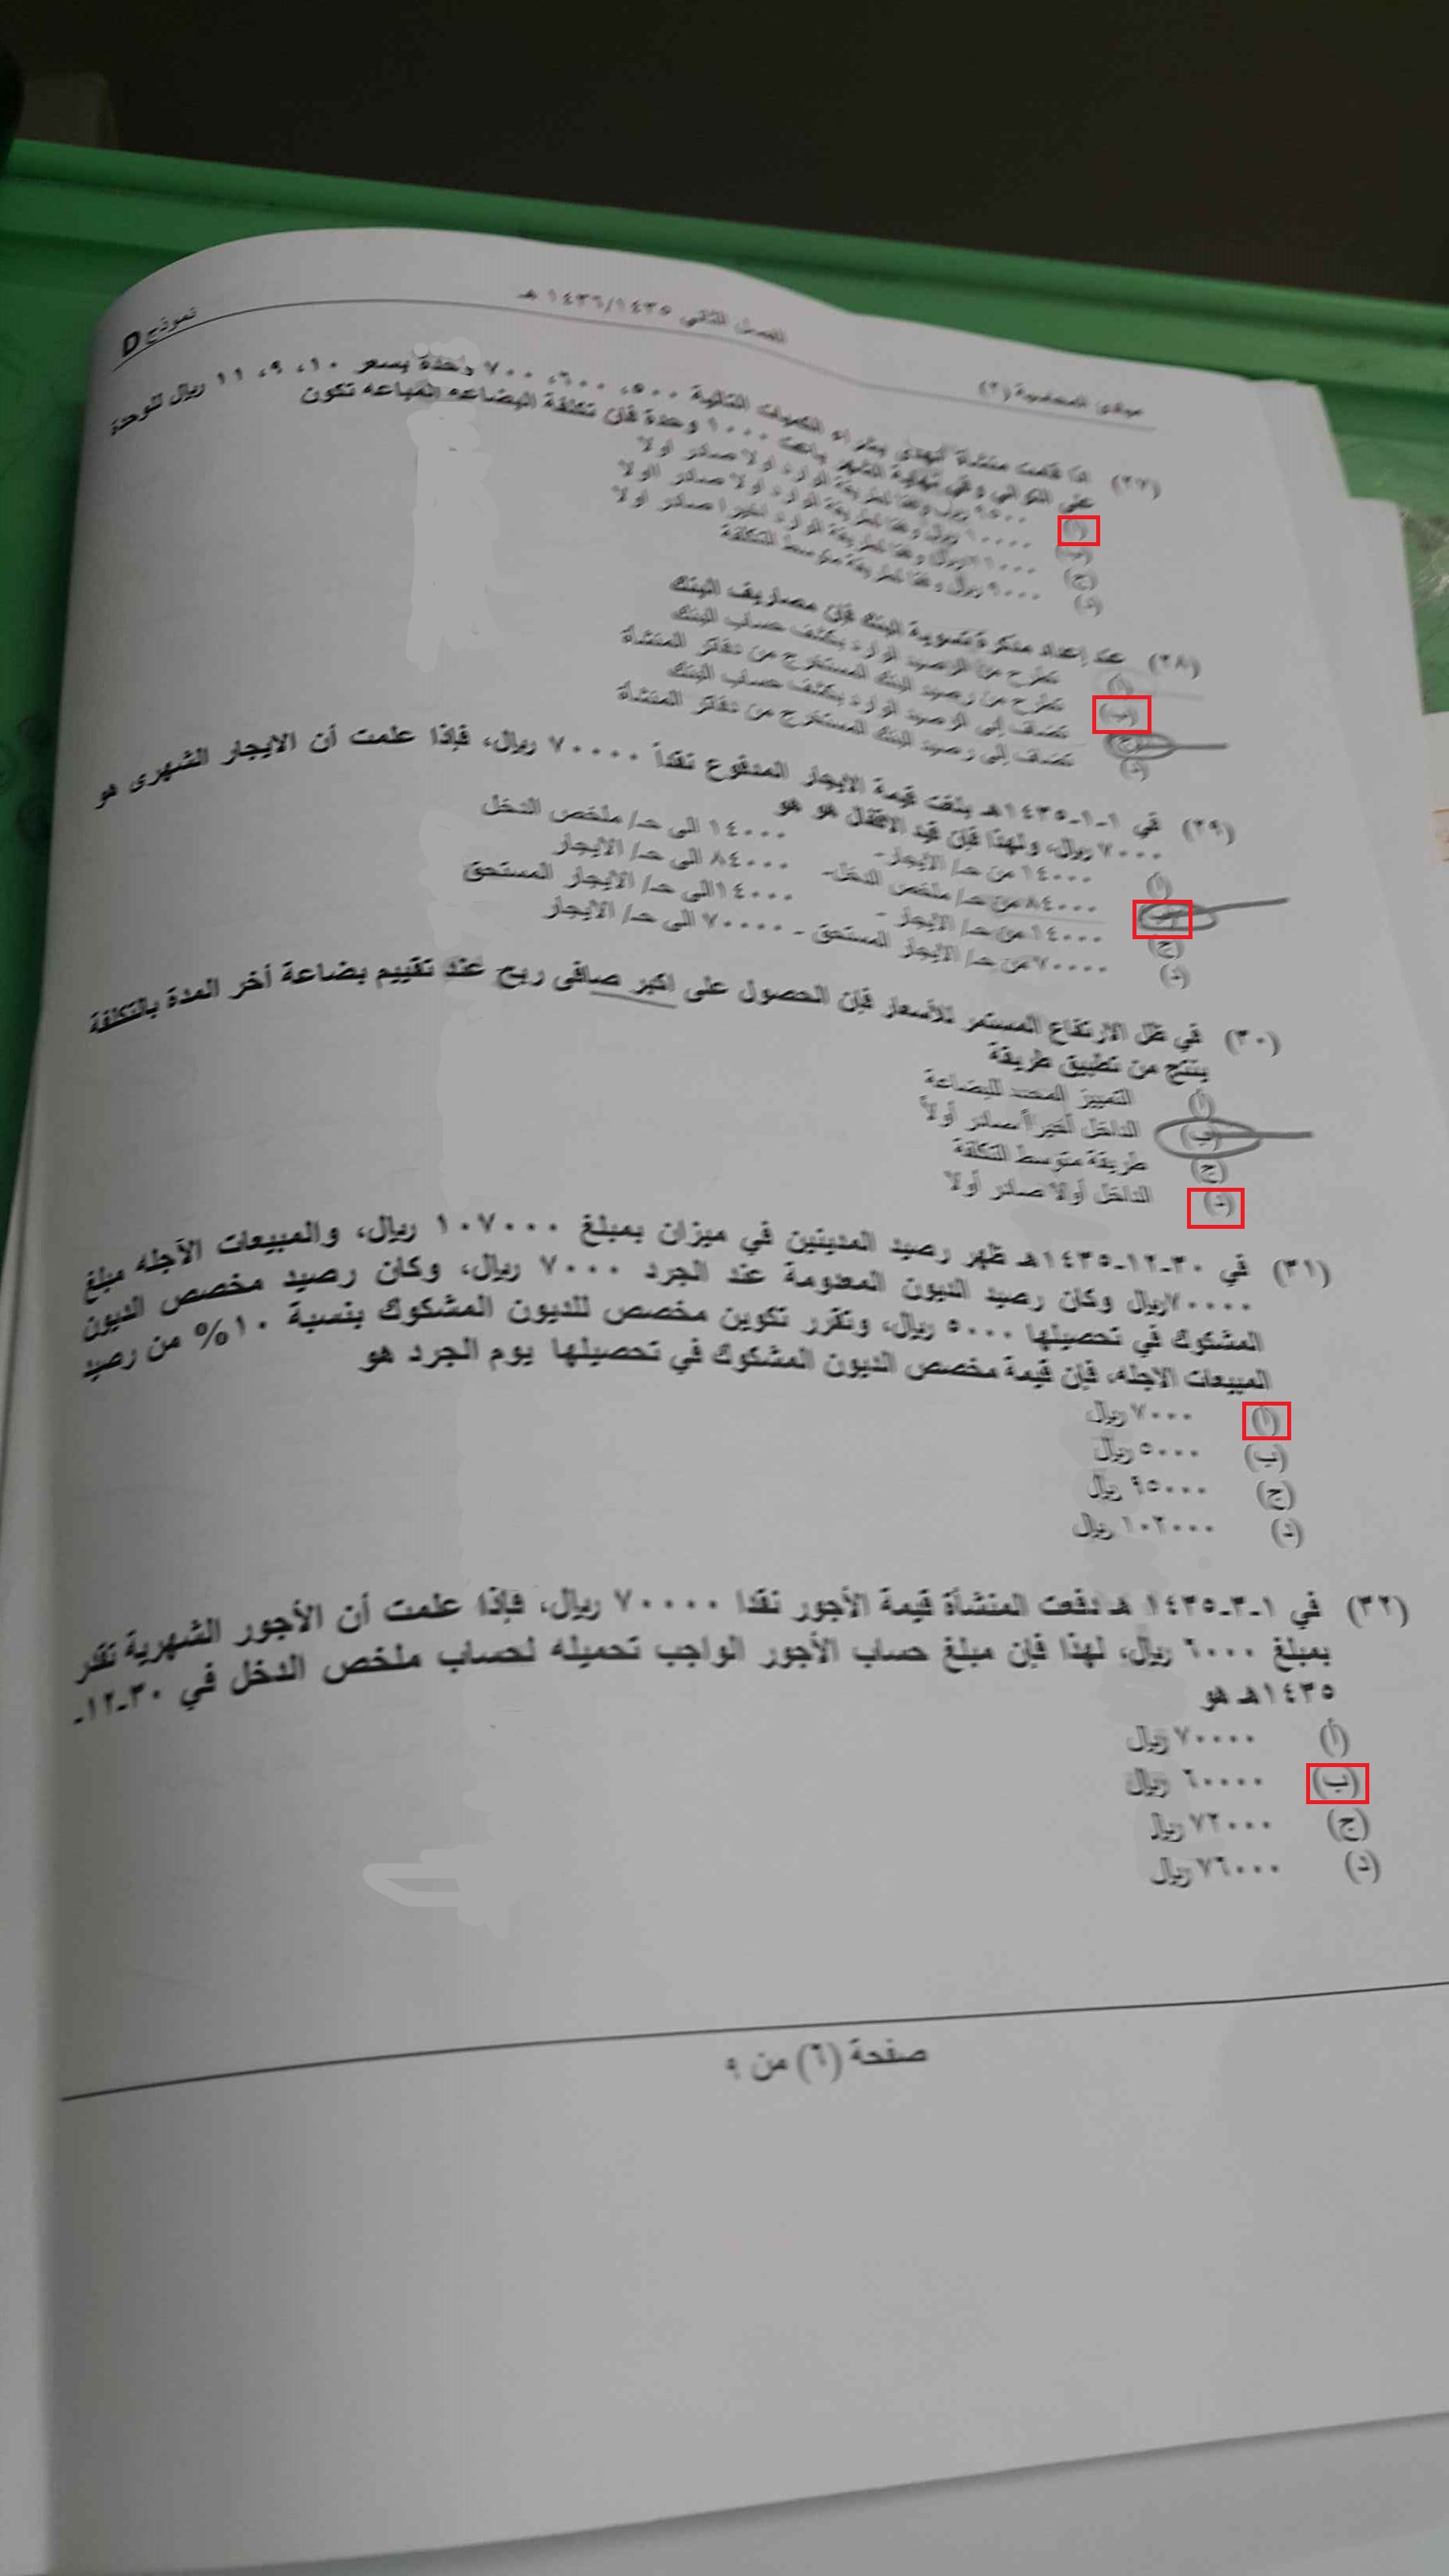 مبادئ المحاسبة (٢) الفصل الثاني ١٤٣٦/١٤٣٥ هـ نموذج D
(٢٧) اذا قامت منشأة الهدى بشراء الكميات التالية ٥٠٠، ٦٠٠، ٧٠٠ وحدة بسعر ١٠، ٩، ١١ ريال للوحدة
على التوالي وفي نهاية الشهر باعت ١٠٠٠ وحدة فان تكلفة البضاعه المباعه تكون
(أ) ٩٥٠٠ ريال وفقا لطريقة الوارد اولا صادر اولا
(ب) ١٠٠٠٠ ريال وفقا لطريقة الوارد اولا صادر اولا
(ج) ١١٠٠٠ ريال وفقا لطريقة الوارد اخيرا صادر اولا
(د) ٩٠٠٠ ريال وفقا لطريقة متوسط التكلفة
(٢٨) عند إعداد مذكرة تسوية البنك فإن مصاريف البنك
(أ) تطرح من الرصيد الوارد بكشف حساب البنك
(ب) تطرح من رصيد البنك المستخرج من دفاتر المنشأة
(ج) تضاف إلى الرصيد الوارد بكشف حساب البنك
(د) تضاف إلى رصيد البنك المستخرج من دفاتر المنشأة
(٢٩) في ١-١-١٤٣٥هـ بلغت قيمة الايجار المدفوع نقداً ٧٠٠٠٠ ريال، فإذا علمت أن الايجار الشهرى هو
٧٠٠٠ ريال، ولهذا فإن قيد الاقفال هو هو
(أ) ١٤٠٠٠ من حـ/ الايجار- ١٤٠٠٠ الى حـ/ ملخص الدخل
(ب) ٨٤٠٠٠ من حـ/ ملخص الدخل- ٨٤٠٠٠ الى حـ/ الايجار
(ج) ١٤٠٠٠ من حـ/ الايجار - ١٤٠٠٠ الى حـ/ الايجار المستحق
(د) ٧٠٠٠٠ من حـ/ الايجار المستحق - ٧٠٠٠٠ الى حـ/ الايجار
(٣٠) في ظل الارتفاع المستمر للأسعار فإن الحصول على اكبر صافى ربح عند تقييم بضاعة أخر المدة بالتكلفة
ينتج من تطبيق طريقة
(أ) التمييز المحدد للبضاعة
(ب) الداخل أخيراً صادر أولاً
(ج) طريقة متوسط التكلفة
(د) الداخل أولا صادر أولا
(٣١) في ٣٠-١٢-١٤٣٥هـ ظهر رصيد المدينين في ميزان بمبلغ ١٠٧٠٠٠ ريال، والمبيعات الآجله مبلغ
٧٠٠٠٠ريال وكان رصيد الديون المعدومة عند الجرد ٧٠٠٠ ريال، وكان رصيد مخصص الديون
المشكوك في تحصيلها ٥٠٠٠ ريال، وتقرر تكوين مخصص للديون المشكوك بنسبة ١٠% من رصيد
المبيعات الاجله، فإن قيمة مخصص الديون المشكوك في تحصيلها يوم الجرد هو
(أ) ٧٠٠٠ ريال
(ب) ٥٠٠٠ ريال
(ج) ٩٥٠٠٠ ريال
(د) ١٠٢٠٠٠ ريال
(٣٢) في ١-٣-١٤٣٥ هـ دفعت المنشأة قيمة الأجور نقدا ٧٠٠٠٠ ريال، فإذا علمت أن الأجور الشهرية تقدر
بمبلغ ٦٠٠٠ ريال، لهذا فإن مبلغ حساب الأجور الواجب تحميله لحساب ملخص الدخل في ٣٠-١٢-
١٤٣٥هـ هو
(أ) ٧٠٠٠٠ ريال
(ب) ٦٠٠٠٠ ريال
(ج) ٧٢٠٠٠ ريال
(د) ٧٦٠٠٠ ريال
صفحة (٦) من ٩